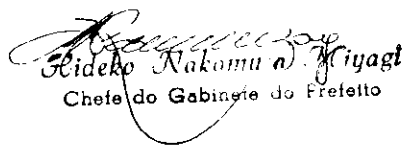 Hideko Nakamura Miyagi
Chefe do Gabinete do Prefeito